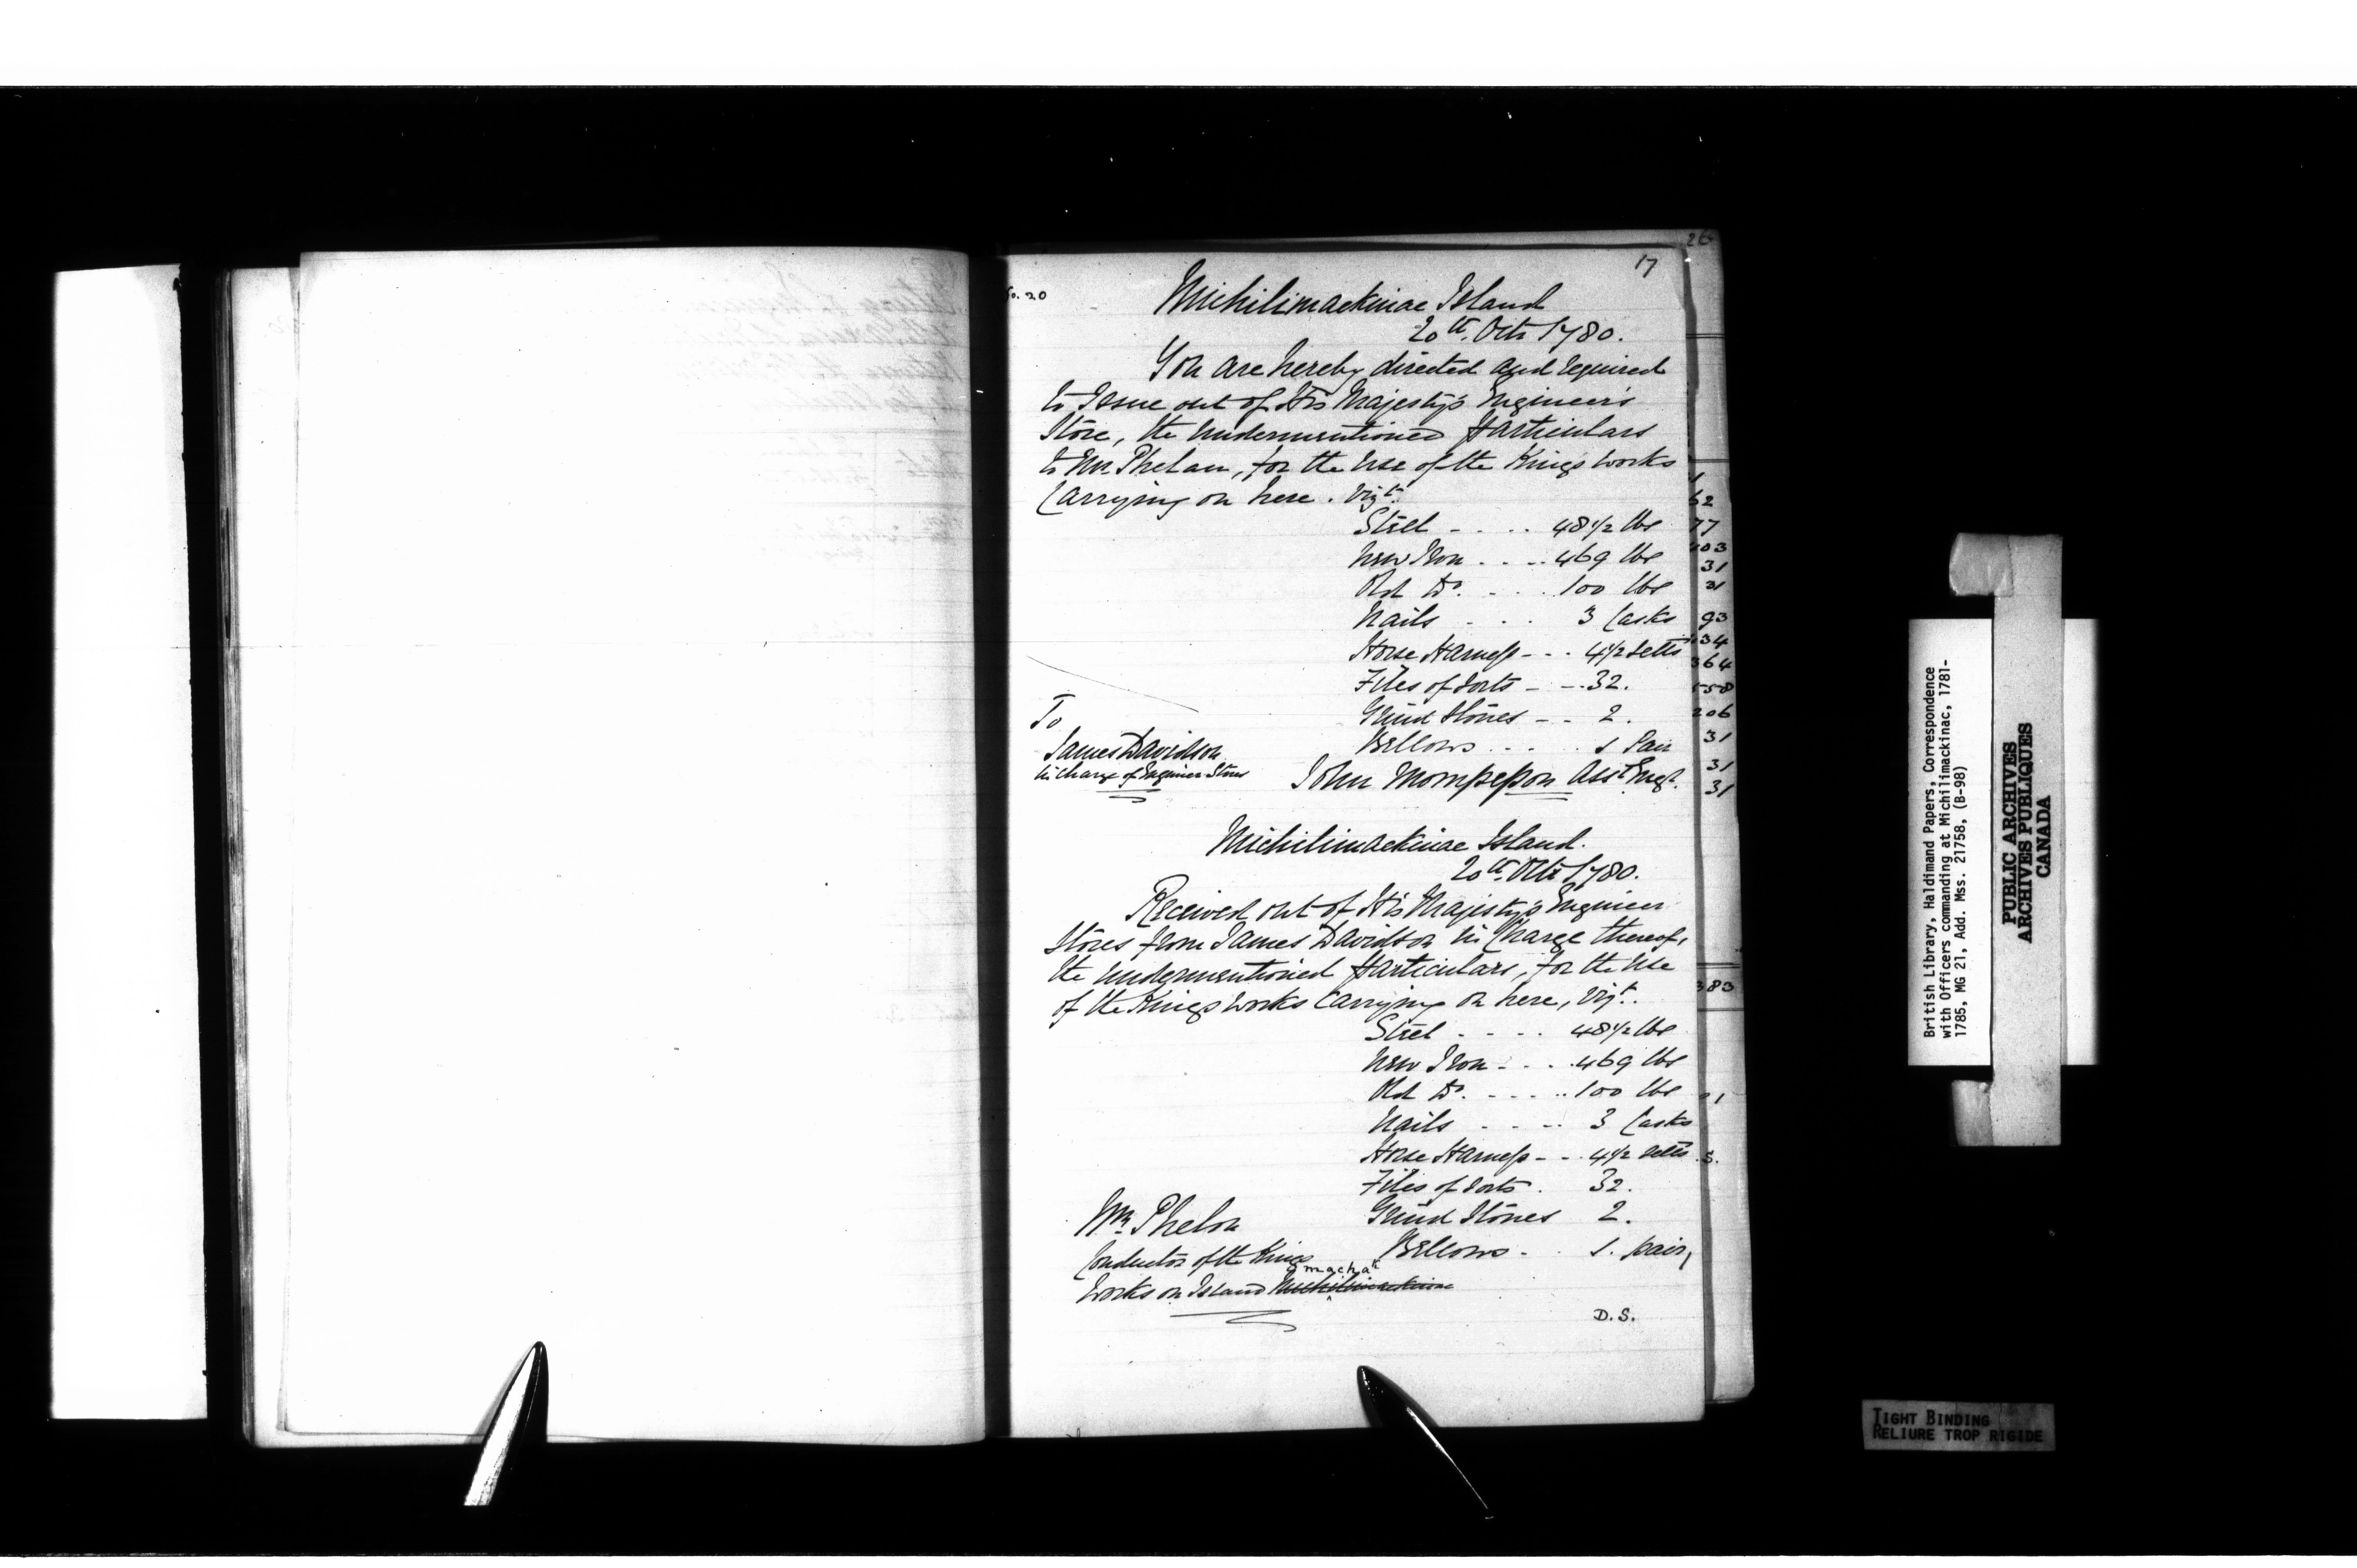 17
26
o. 20
Michilimackinac Island
20th. Octr 1780.
You are hereby directed and required
to Issue out of His Majesty's Engineer's
Store, the undermentioned particulars
to Mr. Phelan, for the use of the Kings works
Carrying on here. Vizt.
Steel - . . . 48 1/2 lbs
New Iron . . . . 469 lbs
Old Do. . . . 100 lbs
Nails . . . 3 Casks
Horse Harness - - . 4 1/2 setts
Files of sorts - - . 32.
Grind Stones - - 2.
Bellows . . . . 1 Pair
To
James Davidson
in Charge of Engineer Stores
John Mompesson Asst Engr.
Michilimackinac Island.
20th. Octr 1780.
Received out of His Majesty's Engineer
Stores from James Davidson in Charge thereof,
the undermentioned particulars, for the use
of the Kings works Carrying on here, Vizt.
Steel - - - - 48 1/2 lbs
New Iron - . . . 469 lbs
Old Do. - - - . . 100 lbs
Nails - - - - 3 Casks
Horse Harness - - . 4 1/2 setts
Files of sorts . 32.
Grind Stones 2.
Bellows - . . 1. pair,
Wm. Phelon
Conductor of the Kings
works on Island Michilimackinac
D. S.
62
77
403
31
31
93
134
364
558
206
31
31
31
383
British Library, Haldimand Papers, Correspondence
with Officers commanding at Michilimackinac, 1781-
1785, MG 21, Add. Mss. 21758, (B-98)
PUBLIC ARCHIVES
ARCHIVES PUBLIQUES
CANADA
TIGHT BINDING
RELIURE TROP RIGIDE